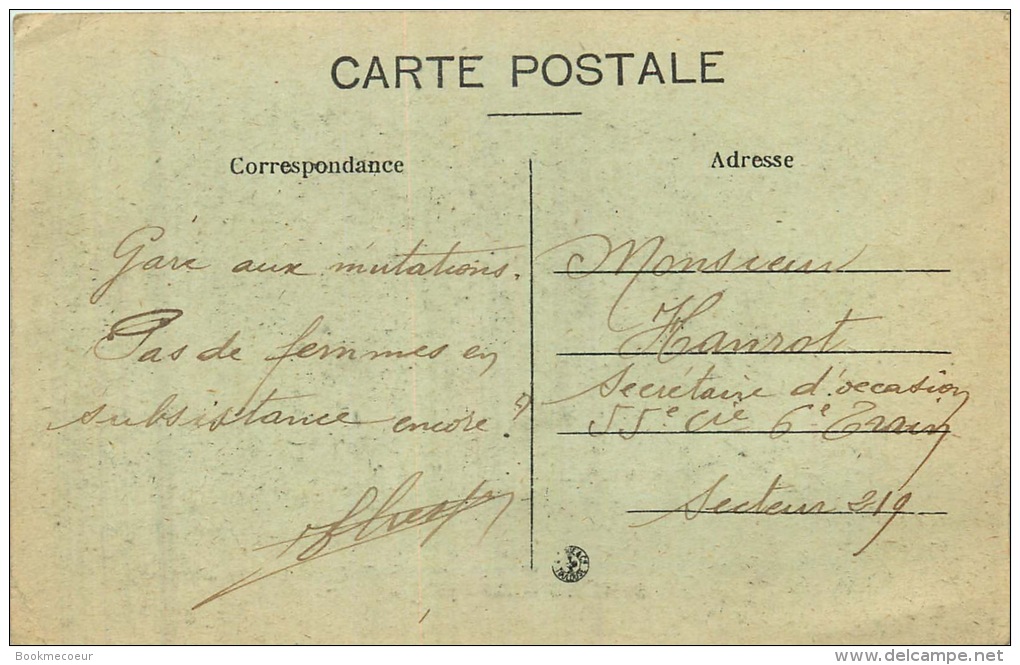 CARTE POSTALE
Correspondance
Gare aux mutations.
Pas de femmes en
subsistance encore ?
Adresse
Monsieur
Hanrot
Secrétaire d'occasion
55e Cie 6e Train
Secteur 219
TOULOUSE
Bookmecoeur
delcampe.net